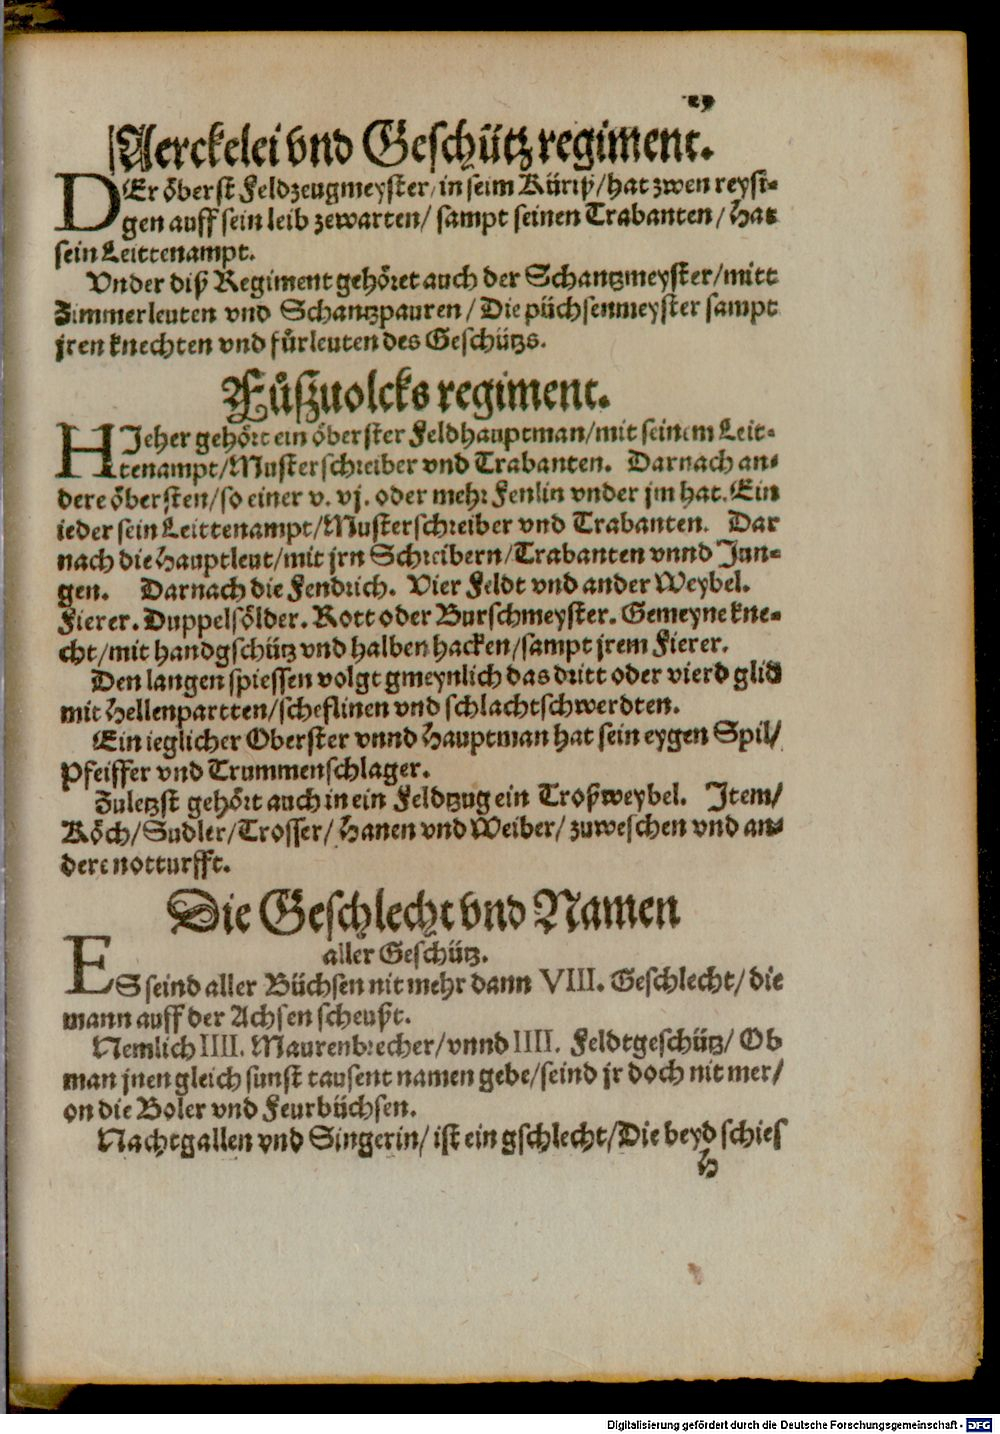 Aerckelei vnd Geschütz regiment.
DEr öberst Feldzeugmeyster/ in seim Küriß/ hat zwen reysi=
gen auff sein leib zewarten/ sampt seinen Trabanten/ Hat
sein Leittenampt.
Vnder diß Regiment gehöret auch der Schantzmeyster/ mitt
Zimmerleuten vnd Schantzpauren/ Die püchsenmeyster sampt
jren knechten vnd fůrleuten des Geschützs.
Fůßuolcks regiment.
HIeher gehört ein öberster Feldhauptman/ mit seinem Leit=
tenampt/ Musterschreiber vnd Trabanten. Darnach an=
dere öbersten/ so einer v. vj. oder mehr Fenlin vnder jm hat. Ein
ieder sein Leittenampt/ Musterschreiber vnd Trabanten. Dar
nach die Hauptleut/ mit jrn Schreibern/ Trabanten vnnd Jun=
gen. Darnach die Fendrich. Vier Feldt vnd ander Weybel.
Fierer. Duppelsölder. Rott oder Burschmeyster. Gemeyne kne=
cht/ mit handgschütz vnd halben hacken/ sampt jrem Fierer.
Den langen spiessen volgt gmeynlich das dritt oder vierd glid
mit Hellenpartten/ scheflinen vnd schlachtschwerdten.
Ein ieglicher Oberster vnnd Hauptman hat sein eygen Spil/
Pfeiffer vnd Trummenschlager.
Zuletzst gehört auch in ein Feldtzug ein Troßweybel. Item/
Köch/ Sudler/ Trosser/ Hanen vnd Weiber/ zuweschen vnd an=
dere notturfft.
Die Geschlecht vnd Namen
aller Geschütz.
ES seind aller Büchsen nit mehr dann VIII. Geschlecht/ die
mann auff der Achsen scheußt.
Nemlich IIII. Maurenbrecher/ vnnd IIII. Feldtgeschütz/ Ob
man jnen gleich sunst tausent namen gebe/ seind jr doch nit mer/
on die Boler vnd Feurbüchsen.
Nachtgallen vnd Singerin/ ist ein gschlecht/ Die beyd schies
H
Digitalisierung gefördert durch die Deutsche Forschungsgemeinschaft - DFG